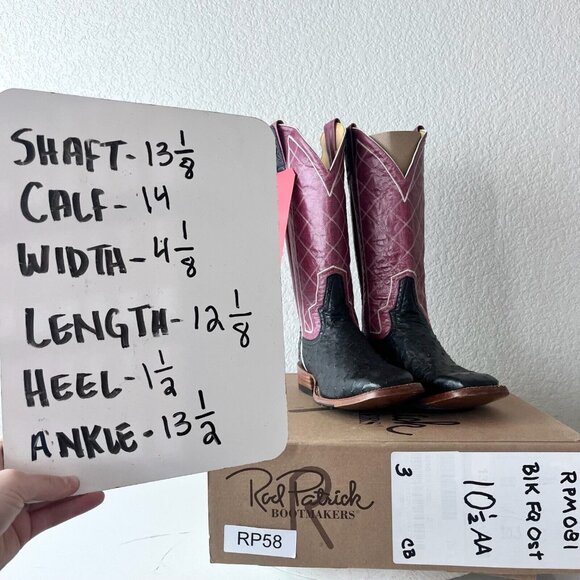 SHAFT - 13 1/8
CALF - 14
WIDTH - 4 1/8
LENGTH - 12 1/8
HEEL - 1 1/2
ANKLE - 13 1/2
Rod Patrick
BOOTMAKERS
RP58
RPM081
BIK FQ Ost
10 1/2 AA
3 CB